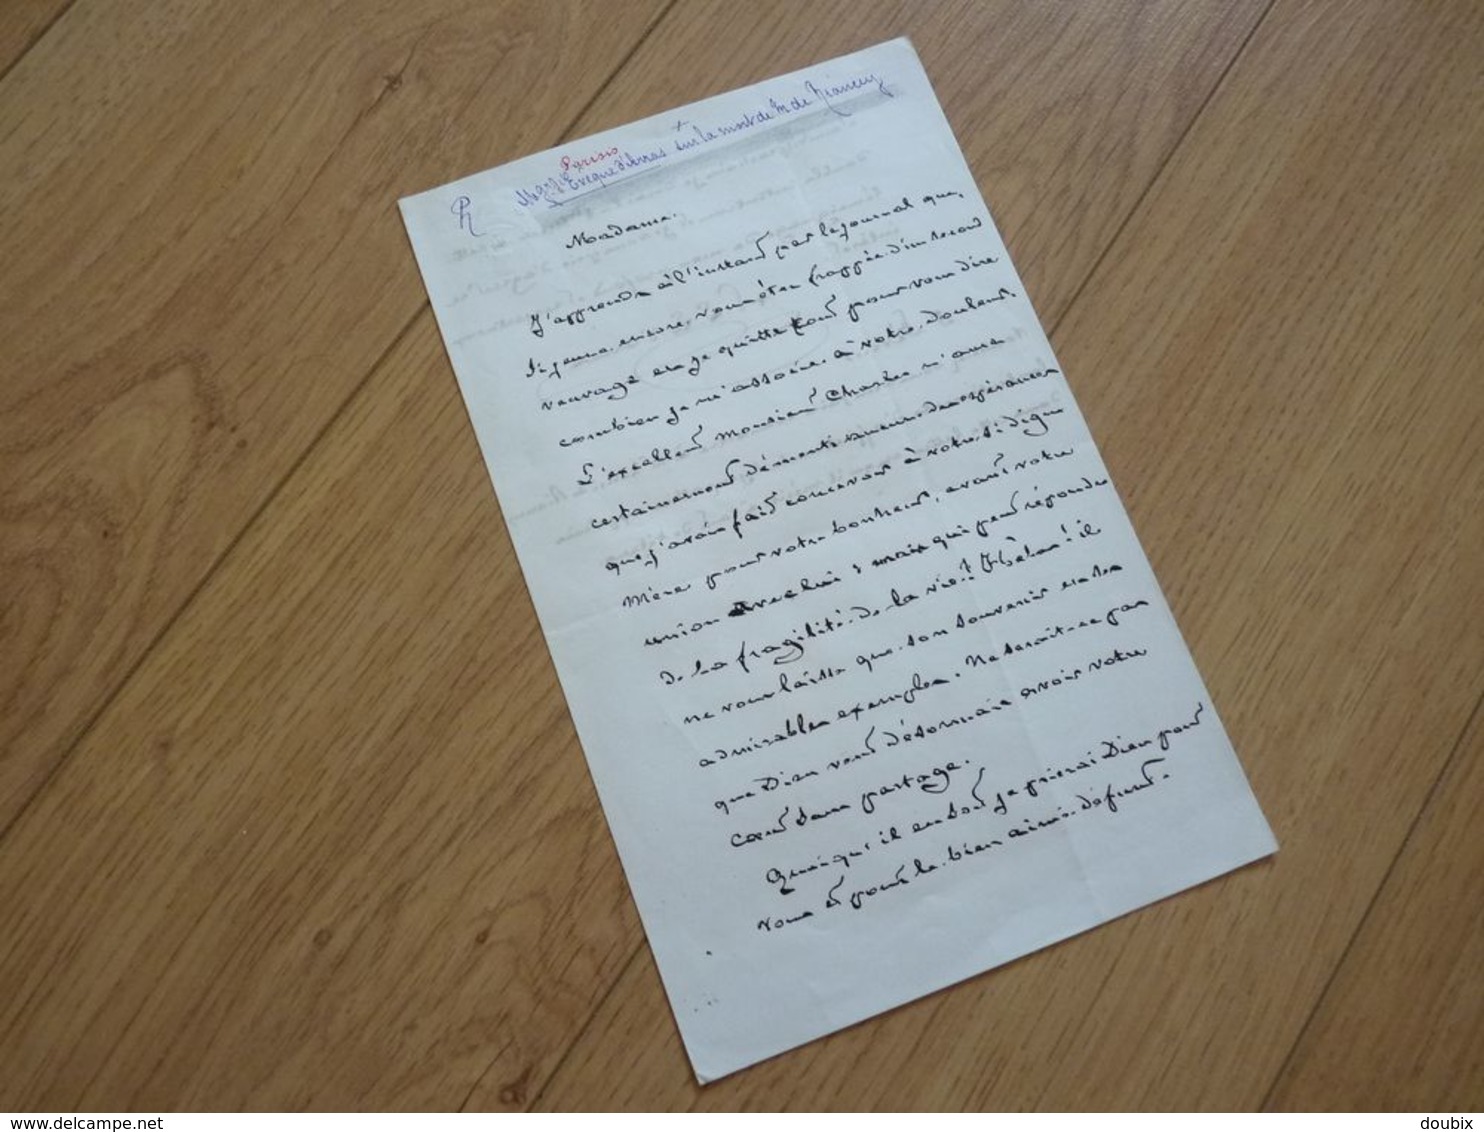 Parisis
Mgr l'Evêque d'Arras sur la mort de M de Riancey
Madame.
J'apprends à l'instant par le journal que,
si jeune encore, vous êtes frappée d'un second
veuvage et je quitte tout pour vous dire
combien je m'associe à votre douleur.
L'excellent Monsieur Charles n'aura
certainement démenti aucune des espérances
que j'avais fait concevoir à votre si digne
Mère pour votre bonheur, avant votre
union avec lui ; mais qui peut répondre
de la fragilité de la vie ? Hélas ! il
ne vous laisse que son souvenir et ses
admirables exemples. Ne serait-ce pas
que Dieu veut désormais avoir votre
cœur sans partage.
Quoiqu'il en soit je prierai Dieu pour
vous et pour le bien aimé défunt.
delcampe.net
doubix